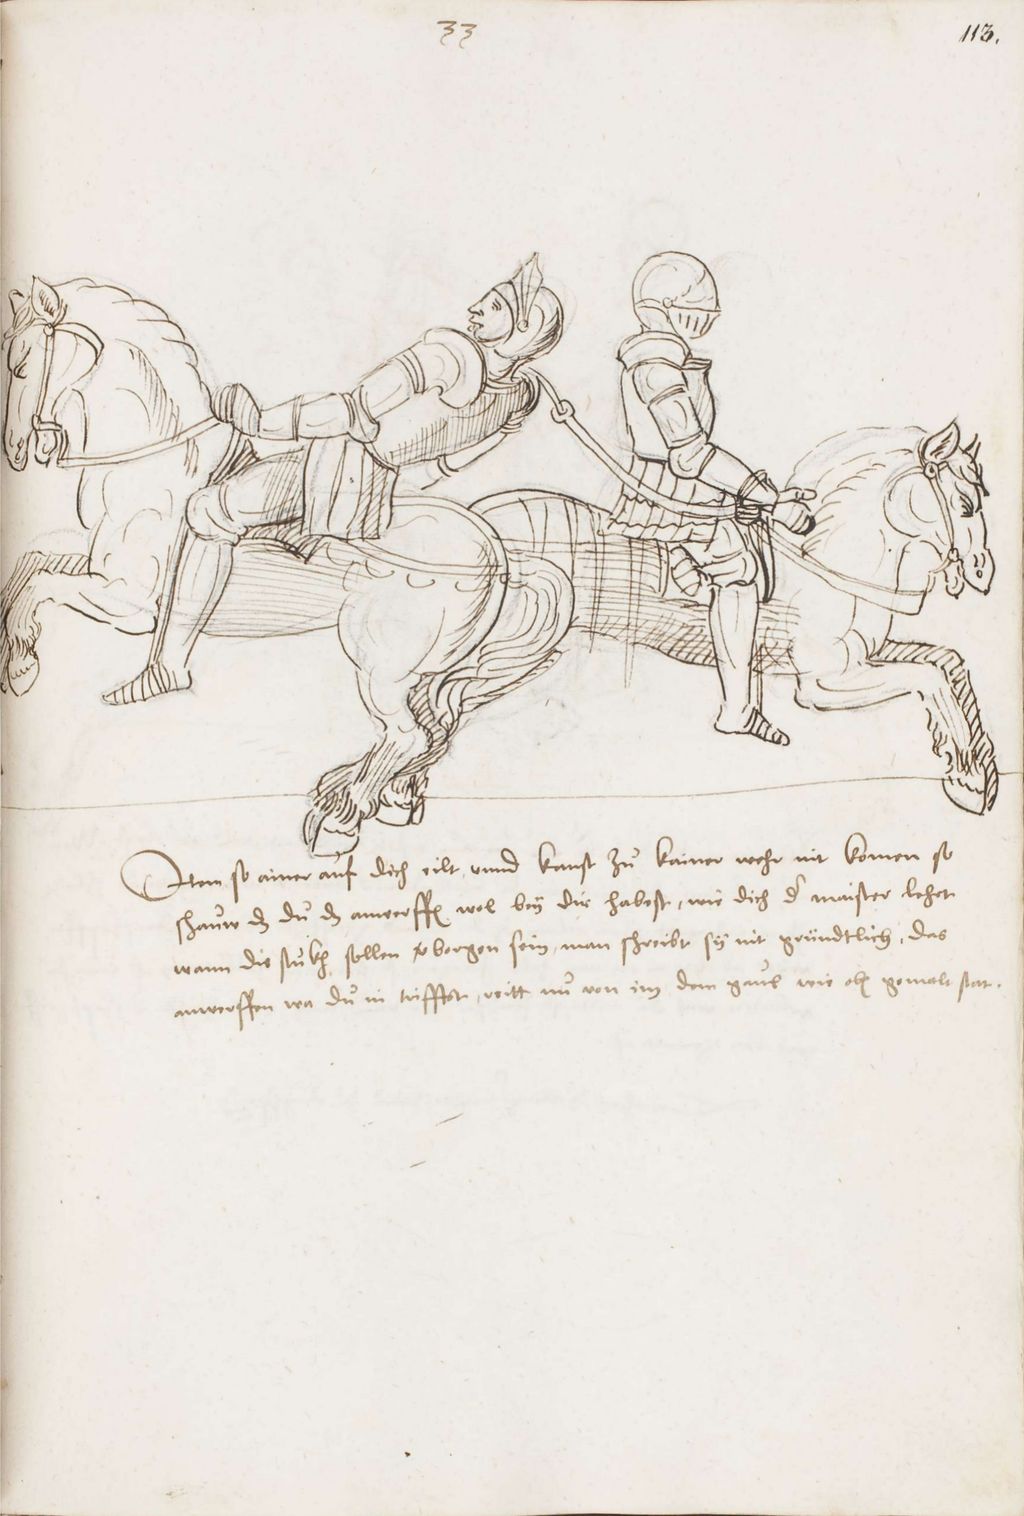 33
113.
Item so ainer auf dich eilt, vnnd kanst zu kainer wehr nit komen so
schauw dz du dz anwerffen wol bey dir habest, wie dich der maister lehet
wann die stuckh sollen verborgen sein, man schreibt sy nit gründtlich, das
anwerffen wa du in triffest, reitt nu von im dem gaul wie obn gemalt stat.